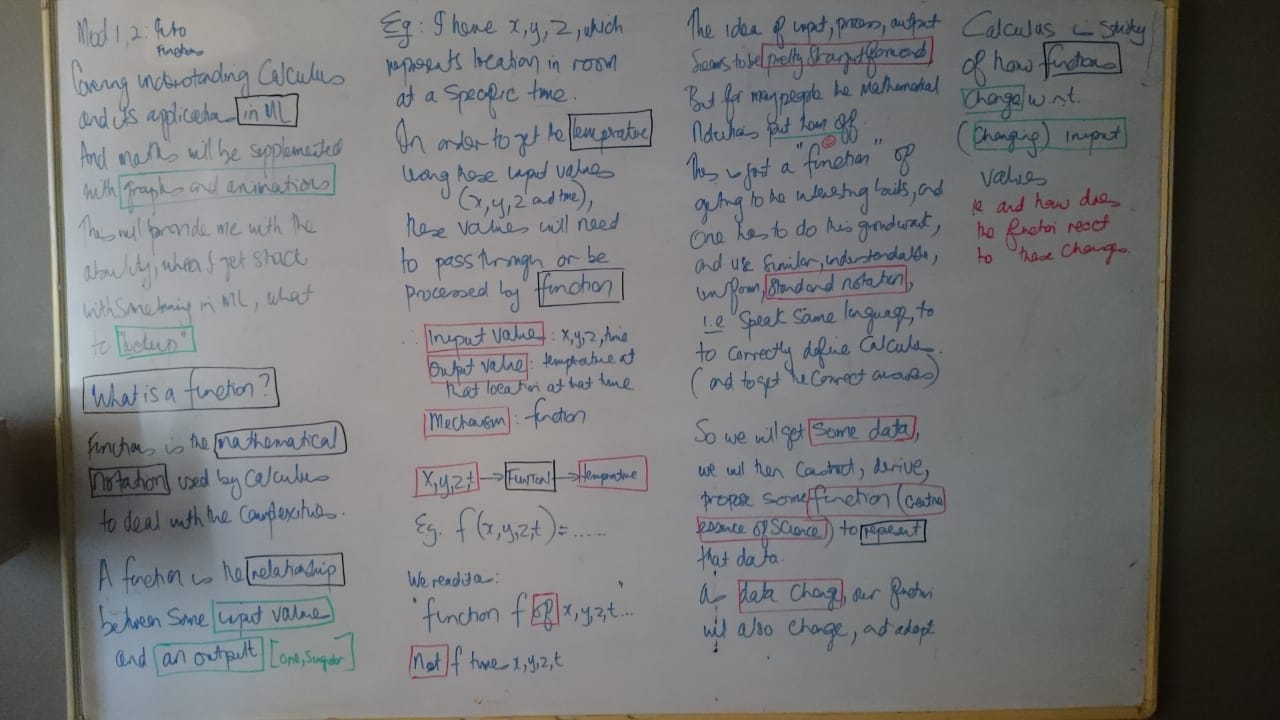 Mod 1, 2: Intro
Functions
Covering understanding Calculus
and its application in ML
And maths will be supplemented
with graphs and animations
This will provide me with the
ability, when I get stuck
with something in ML, what
to "lookup"
What is a function?
Functions is the mathematical
notation used by Calculus
to deal with the complexities.
A function is the relationship
between some input value
and an output [one, singular]
Eg: I have x, y, z, which
represents location in room
at a specific time.
In order to get the temperature
using these input values
(x, y, z and time),
these values will need
to pass through or be
processed by function
Input value: x, y, z, time
Output value: temperature at
that location at that time
Mechanism: function
x, y, z, t → Function → temperature
Eg. f(x, y, z, t) = ......
We read it as:
"function f of x, y, z, t..."
Not f times x, y, z, t
The idea of input, process, output
seems to be pretty straightforward
But for many people the Mathematical
Notations put them off.
This is just a "function" of
getting to the interesting bits, and
one has to do this groundwork,
and use similar, understandable,
uniform, standard notation,
i.e Speak same language, to
to correctly define Calculus.
(and to get the correct answers)
So we will get some data,
we will then construct, derive,
propose some function (central
essence of Science) to represent
that data.
as data change, our function
will also change, and adapt
Calculus is Study
of how functions
change w.r.t.
(changing) input
values
ie and how does
the function react
to these changes.